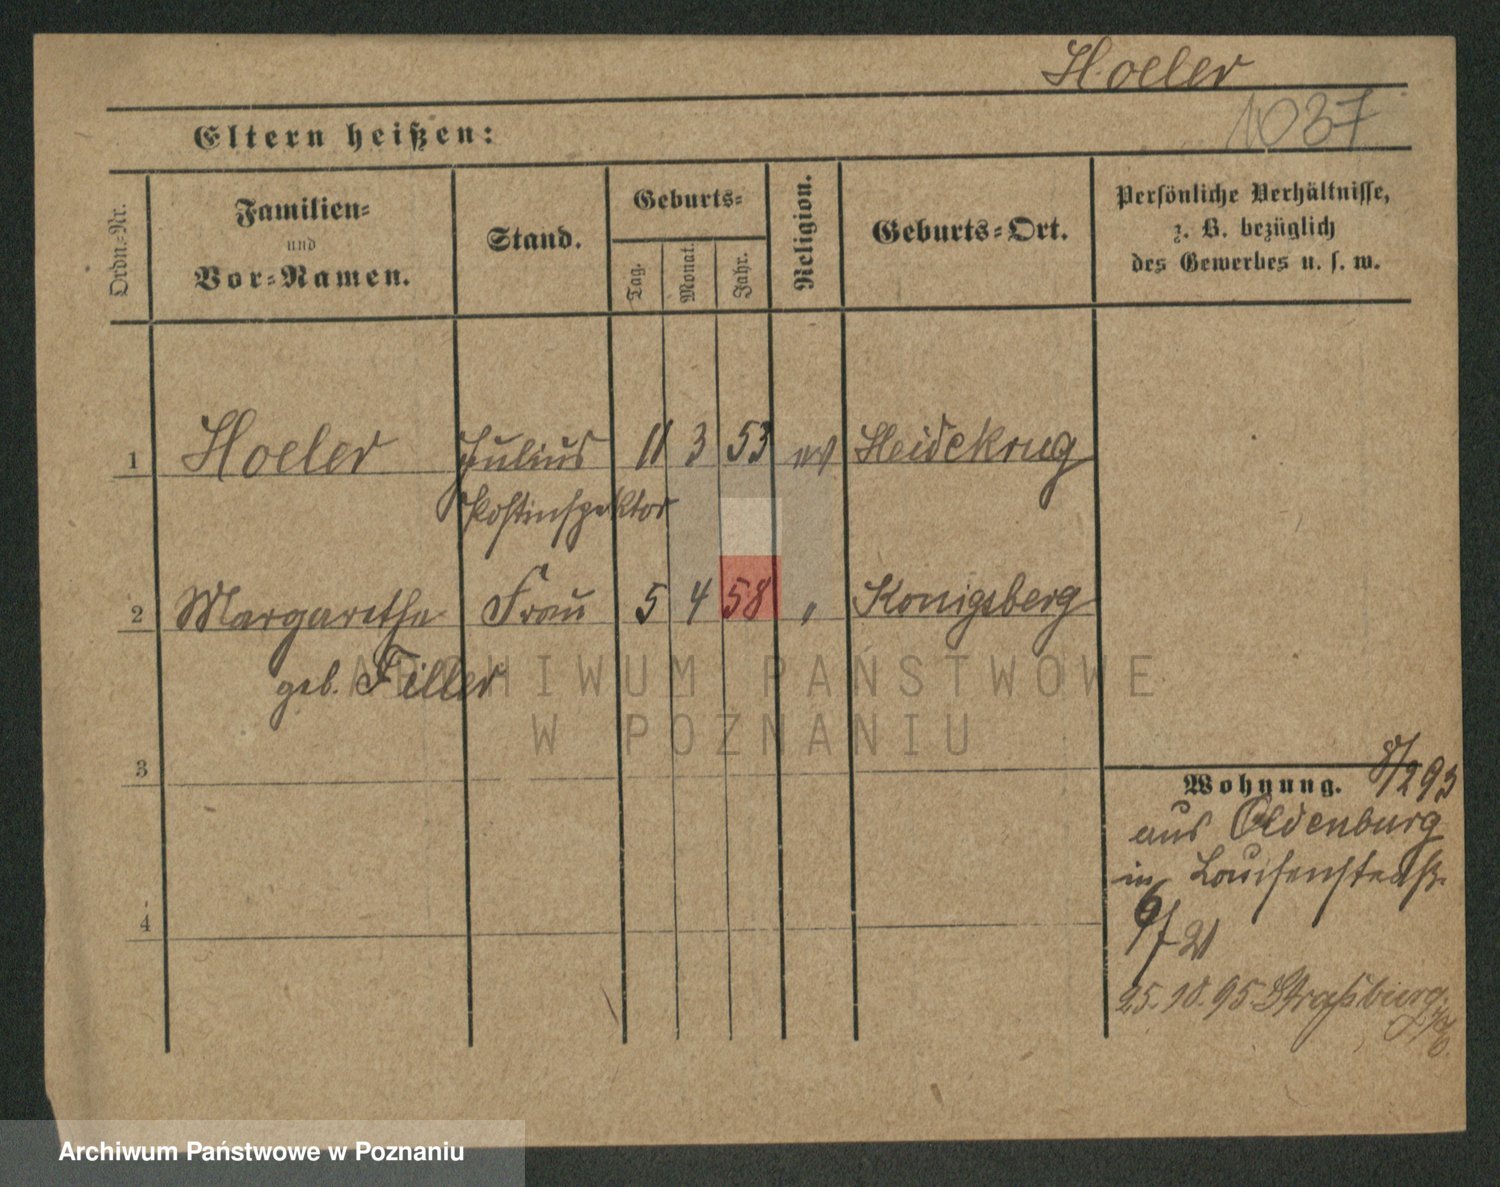 Hoeler
1037
Eltern heißen:
Ordn.-Nr.
Familien-
und
Vor-Namen.
Stand.
Geburts-
Tag.
Monat.
Jahr.
Religion.
Geburts-Ort.
Persönliche Verhältnisse,
z. B. bezüglich
des Gewerbes u. s. w.
1 Hoeler Julius 11 3 53 ev Heidekrug
Postinspektor
2 Margarethe Frau 5 4 58 " Königsberg
geb. Filler
ARCHIWUM PAŃSTWOWE
W POZNANIU
3
4
Wohnung. 8/2 93
aus Oldenburg
in Louisenstraß.
21
25.10.95 Straßburg
Archiwum Państwowe w Poznaniu